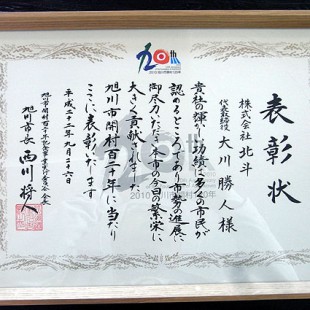 表彰状
株式会社 北斗
代表取締役 大川勝人様
貴社の輝かしい功績は多くの市民が
認めるところであり市勢の進展に
御尽力いただき本市の今日の繁栄に
大きく貢献されました
旭川市開村百二十年に当たり
ここに表彰いたします
平成二十二年九月二十六日
旭川市長 西川将人